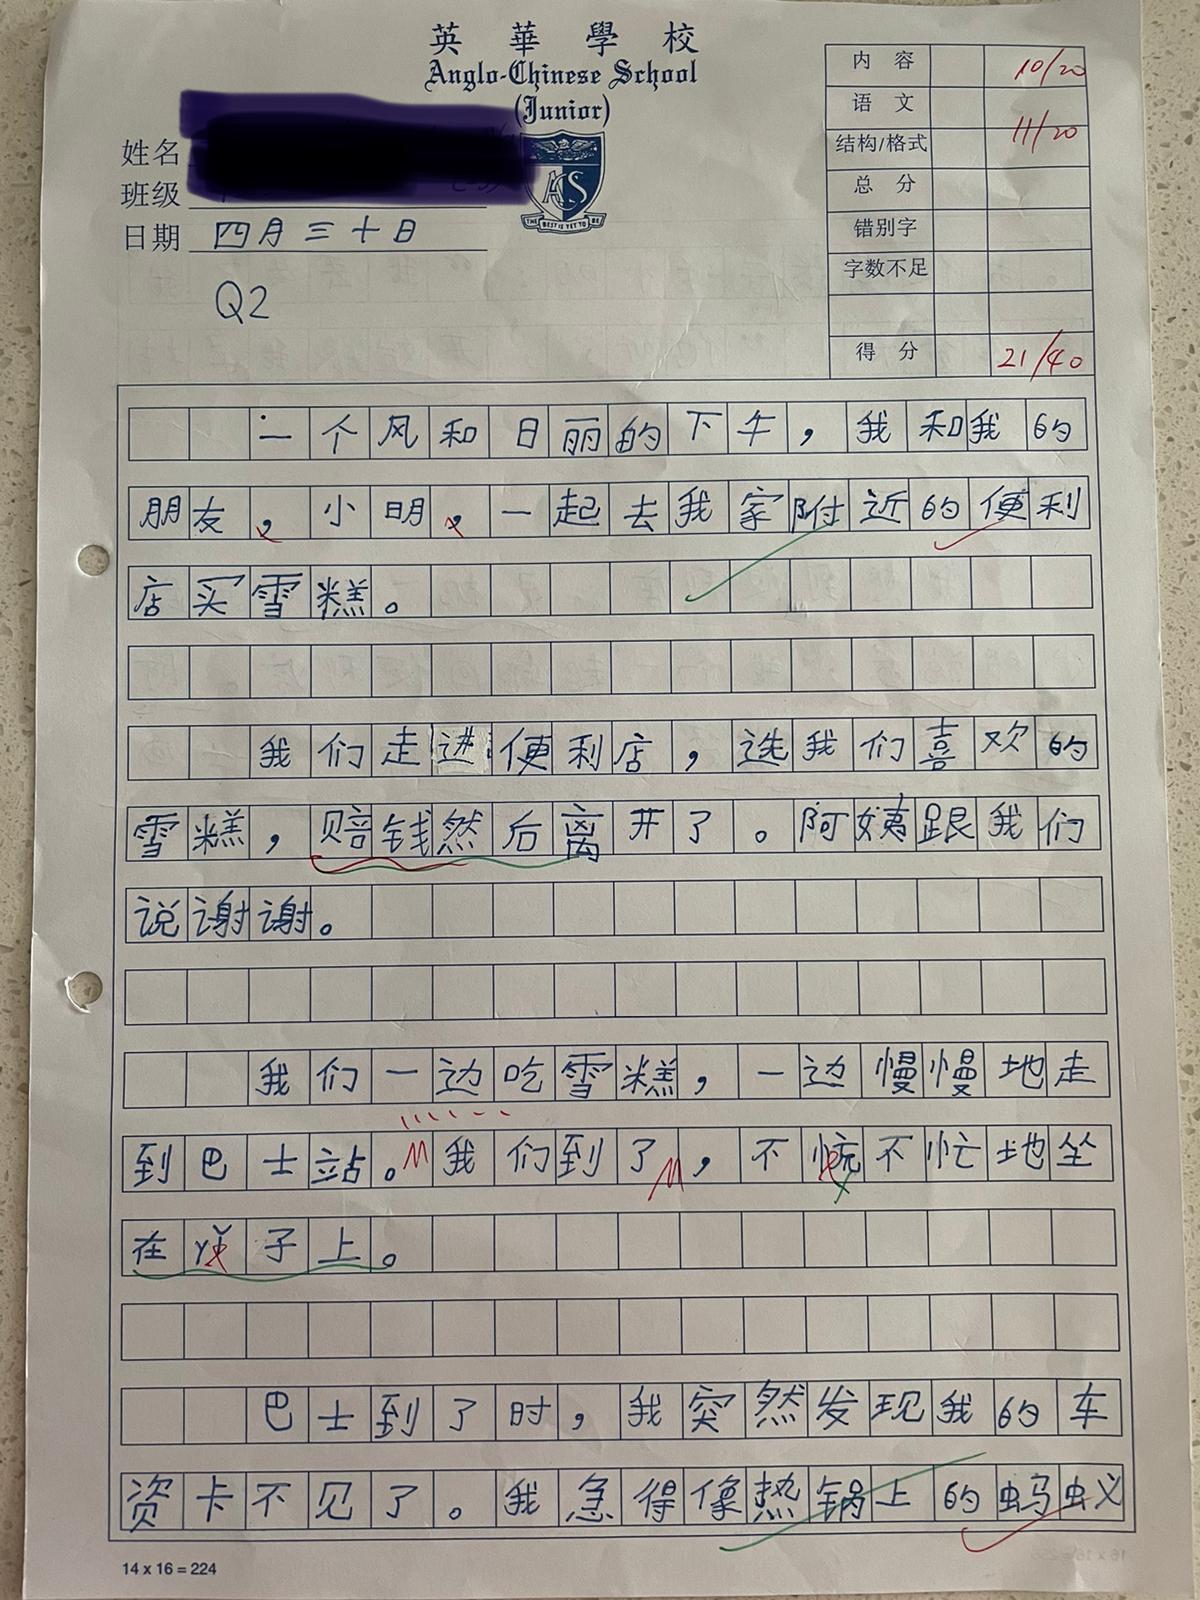 英華學校
Anglo-Chinese School
(Junior)
姓名
班级
日期 四月三十日
Q2
内容 10/20
语文
结构/格式 11/20
总分
错别字
字数不足
得分 21/40
THE BEST IS YET TO BE
一个风和日丽的下午，我和我的
朋友，小明，一起去我家附近的便利
店买雪糕。
我们走进便利店，选我们喜欢的
雪糕，赔钱然后离开了。阿姨跟我们
说谢谢。
我们一边吃雪糕，一边慢慢地走
到巴士站。我们到了，不慌不忙地坐
在子上。
巴士到了时，我突然发现我的车
资卡不见了。我急得像热锅上的蚂蚁
14 x 16 = 224